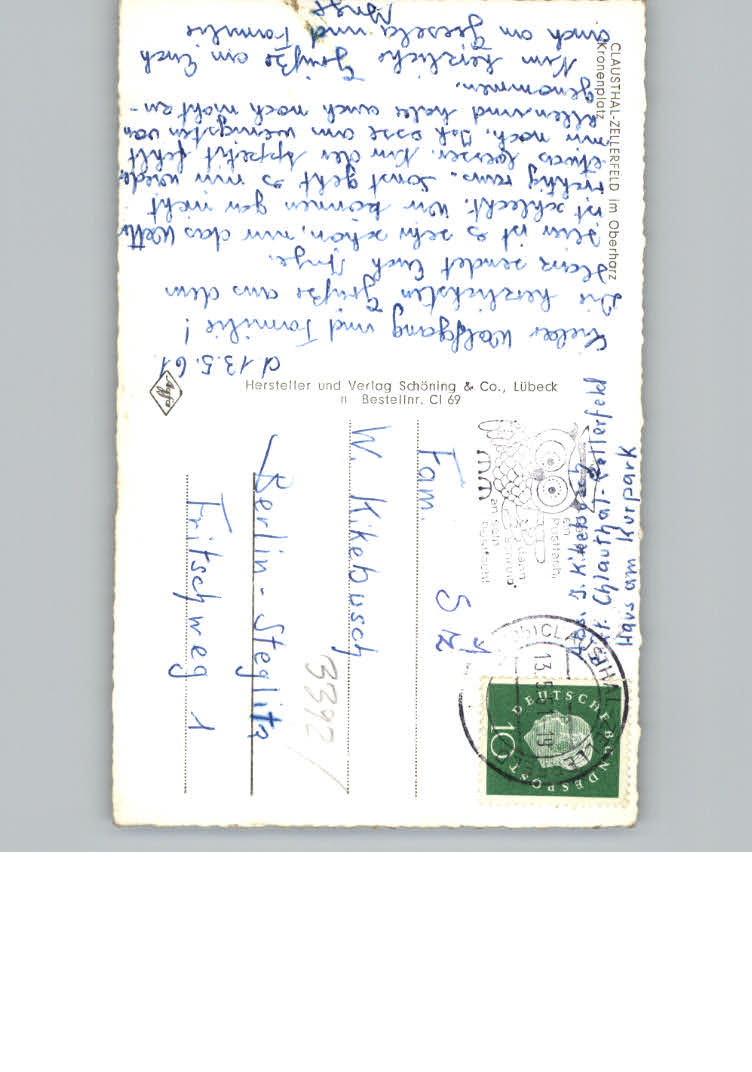 CLAUSTHAL-ZELLERFELD im Oberharz
Kronenplatz
d 13.5.61
Lieber Wolfgang und Familie!
Die herzlichsten Grüße aus dem
Harz sendet Euch Inge.
Hier ist es sehr schön, nur das Wetter
ist schlecht. Wir können gar nicht
richtig raus. Sonst geht es mir wieder
etwas besser. Nur der Appetit fehlt
mir noch. Ich esse am wenigsten von
allen und habe auch noch nicht zu-
genommen.
Nun herzliche Grüße an Euch
auch an Gisela und Familie
Inge
Hersteller und Verlag Schöning & Co., Lübeck
Bestellnr. Cl 69
Agfa
Abs. I. Kikebusch
Clauthal-Zellerfeld
Haus am Kurpark
ein
Postsch.
CLAUSTHAL-ZELLE
13.5.61
DEUTSCHE BUNDESPOST
10
Fam.
W. Kikebusch
Berlin-Steglitz
Fritschweg 1
3392